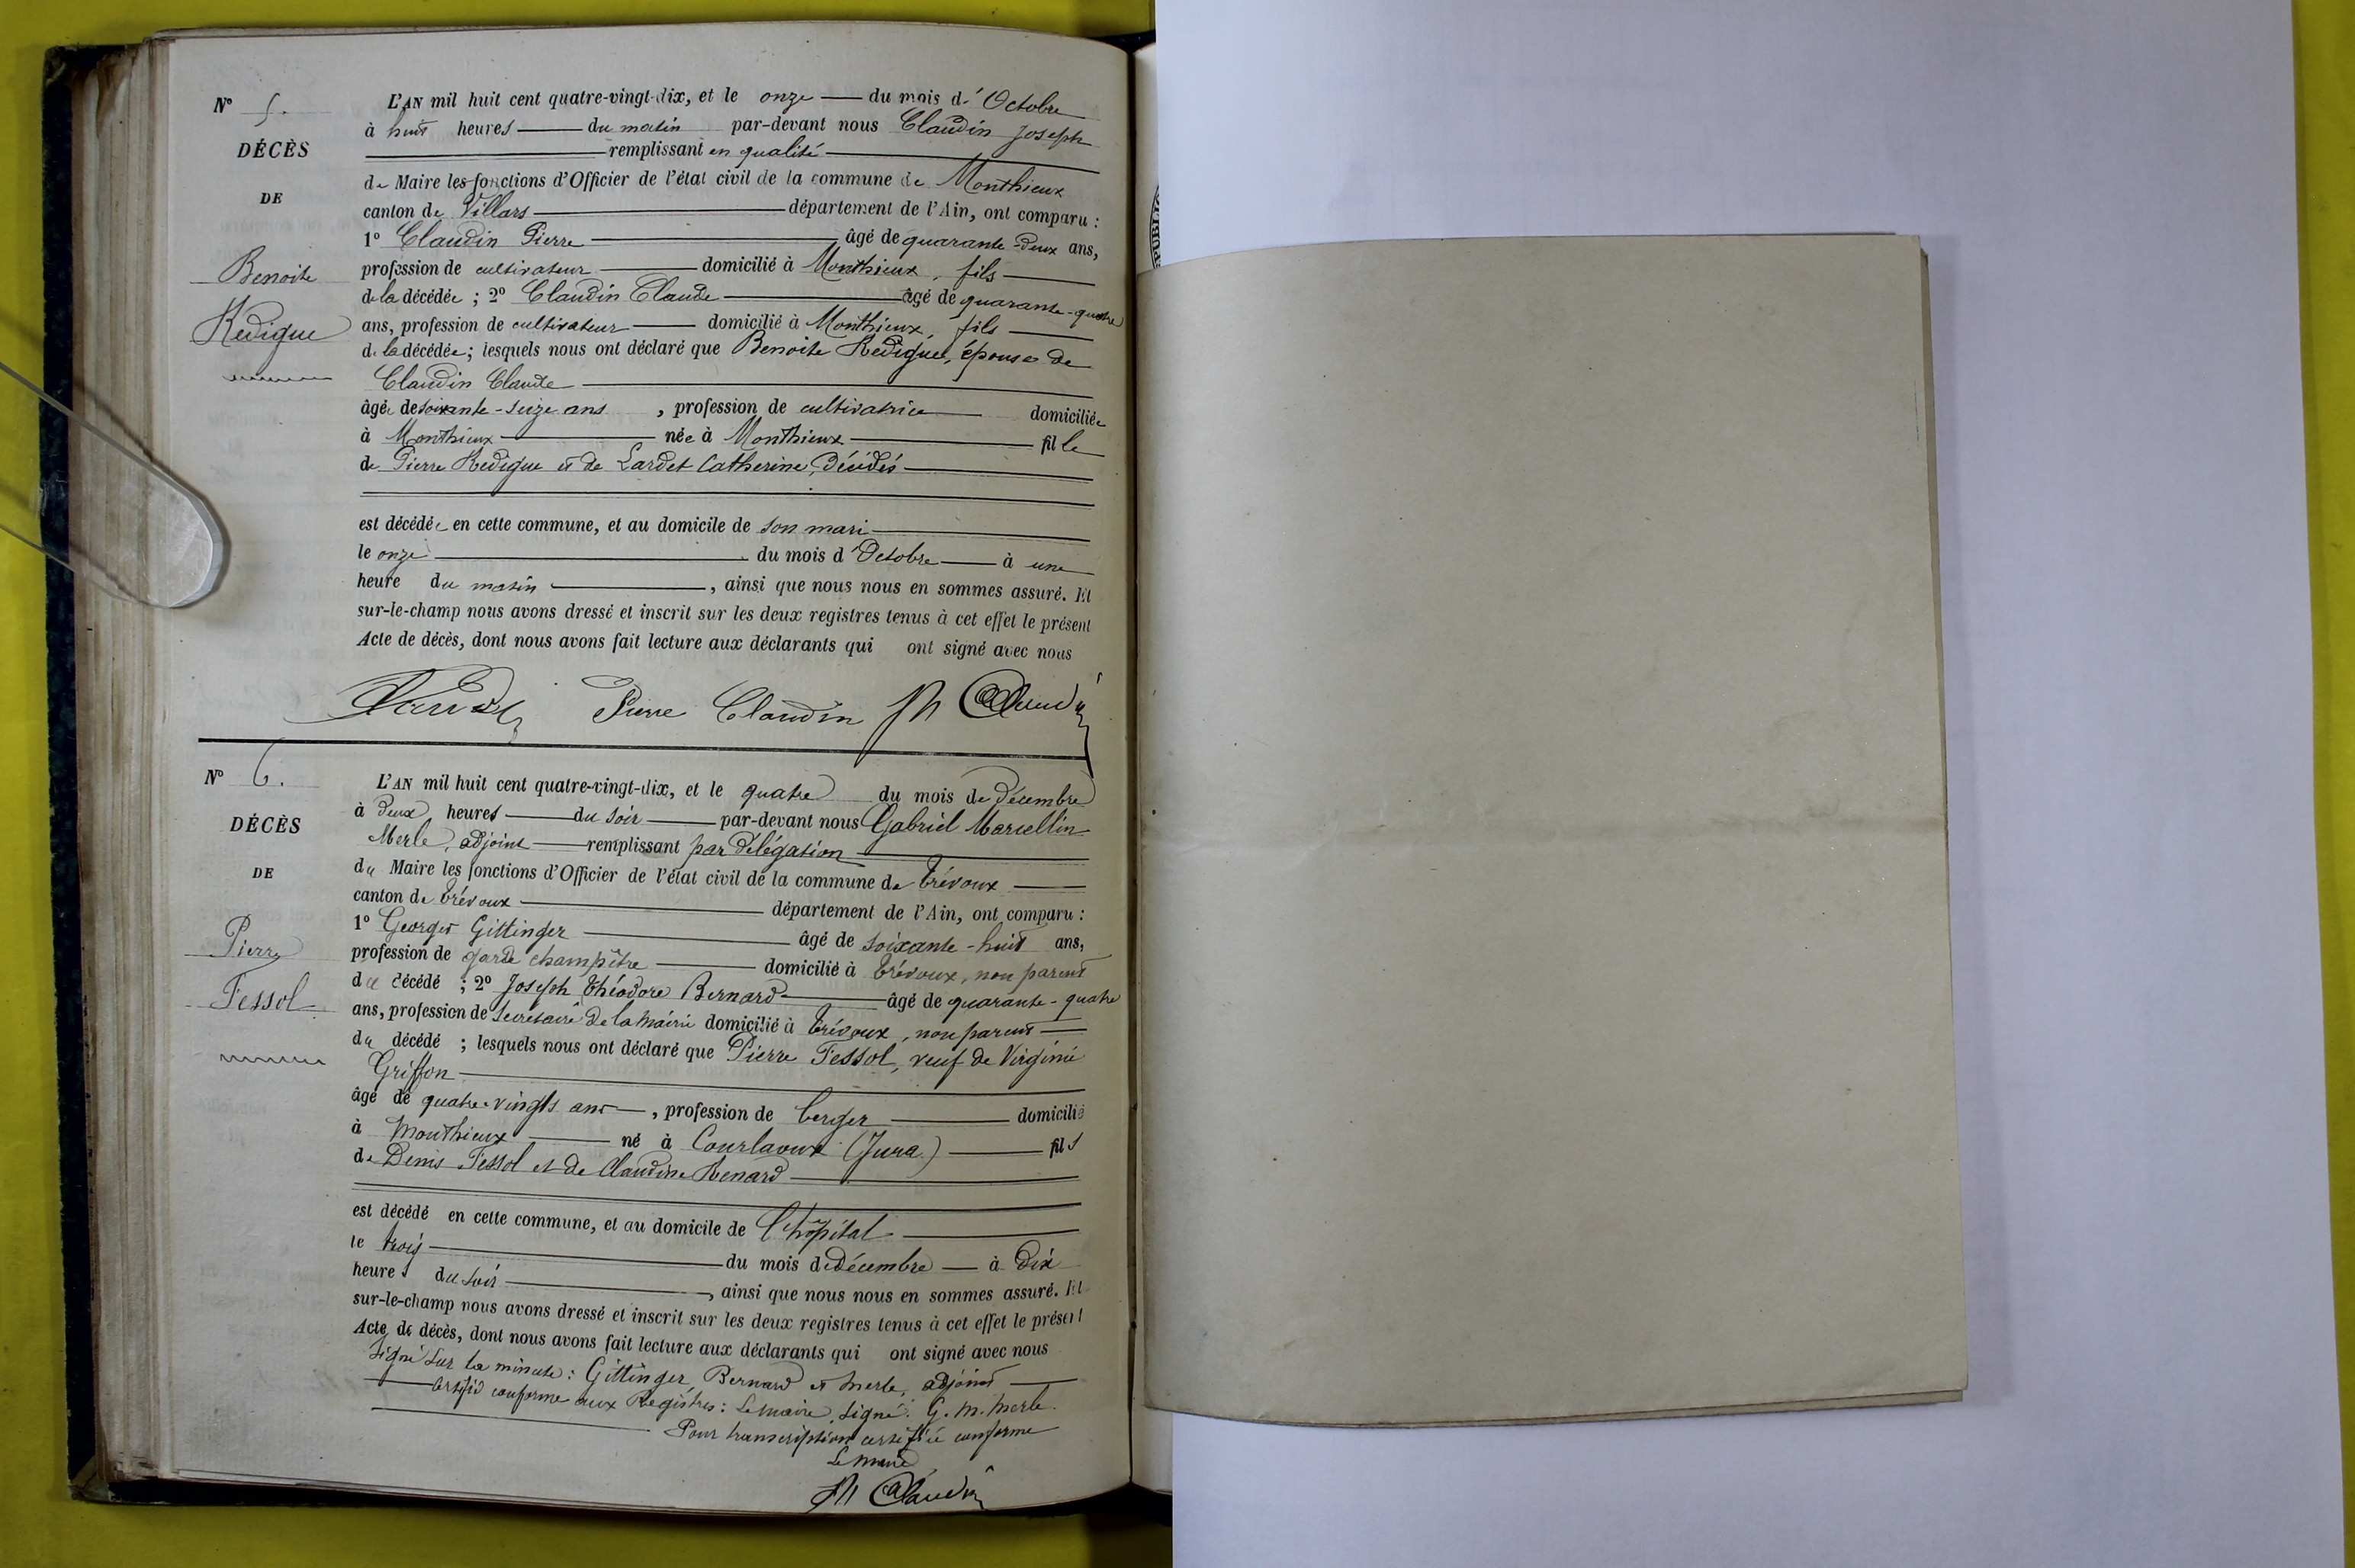 N° 5.
DÉCÈS
DE
Benoite
Redique
L'AN mil huit cent quatre-vingt-dix, et le onze du mois d'Octobre
à huit heures du matin par-devant nous Claudin Joseph
remplissant en qualité
de Maire les fonctions d'Officier de l'état civil de la commune de Monthieux
canton de Villars département de l'Ain, ont comparu :
1° Claudin Pierre âgé de quarante-deux ans,
profession de cultivateur domicilié à Monthieux, fils
de la décédée ; 2° Claudin Claude âgé de quarante-quatre
ans, profession de cultivateur domicilié à Monthieux, fils
de la décédée ; lesquels nous ont déclaré que Benoite Redique, épouse de
Claudin Claude
âgée de soixante-seize ans, profession de cultivatrice domiciliée
à Monthieux née à Monthieux fille
de Pierre Redique et de Lardet Catherine, décédés
est décédée en cette commune, et au domicile de son mari
le onze du mois d'Octobre à une
heure du matin, ainsi que nous nous en sommes assuré. Et
sur-le-champ nous avons dressé et inscrit sur les deux registres tenus à cet effet le présent
Acte de décès, dont nous avons fait lecture aux déclarants qui ont signé avec nous
Pierre Claudin Claudin
N° 6.
DÉCÈS
DE
Pierre
Fessol
L'AN mil huit cent quatre-vingt-dix, et le quatre du mois de décembre
à deux heures du soir par-devant nous Gabriel Marcellin
Merle, adjoint remplissant par délégation
du Maire les fonctions d'Officier de l'état civil de la commune de Trévoux
canton de Trévoux département de l'Ain, ont comparu :
1° Georges Gittinger âgé de soixante-huit ans,
profession de garde champêtre domicilié à Trévoux, non parent
du décédé ; 2° Joseph Théodore Bernard âgé de quarante-quatre
ans, profession de secrétaire de la mairie domicilié à Trévoux, non parent
du décédé ; lesquels nous ont déclaré que Pierre Fessol, veuf de Virginie
Griffon
âgé de quatre-vingts ans, profession de berger domicilié
à Monthieux né à Courlaoux (Jura) fils
de Denis Fessol et de Claudine Renard
est décédé en cette commune, et au domicile de l'hôpital
le trois du mois de décembre à dix
heures du soir, ainsi que nous nous en sommes assuré. Et
sur-le-champ nous avons dressé et inscrit sur les deux registres tenus à cet effet le présent
Acte de décès, dont nous avons fait lecture aux déclarants qui ont signé avec nous
signé sur la minute : Gittinger, Bernard et Merle, adjoint
Certifié conforme aux Registres : Le maire, signé : G. M. Merle.
Pour transcription certifiée conforme
Le maire
Claudin